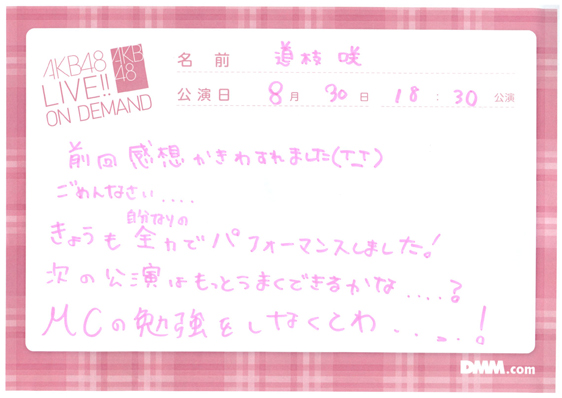 AKB48
LIVE!!
ON DEMAND
AKB
48
名前 道枝 咲
公演日 8月 30日 18:30 公演
前回 感想かきわすれました(T_T)
ごめんなさい....
自分なりの
きょうも 全力で パフォーマンスしました!
次の公演はもっとうまくできるかな....?
MCの勉強をしなくてわ.....!
DMM.com